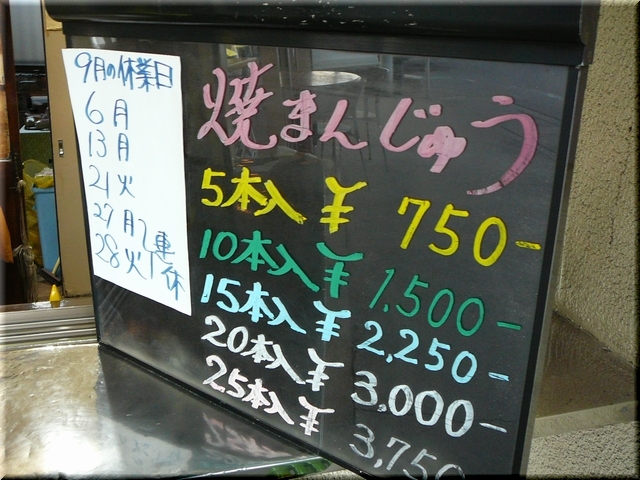 9月の休業日
6月
13月
21火
27月
28火
連休
焼まんじゅう
5本入 ¥750-
10本入 ¥1,500-
15本入 ¥2,250-
20本入 ¥3,000-
25本入 ¥3,750